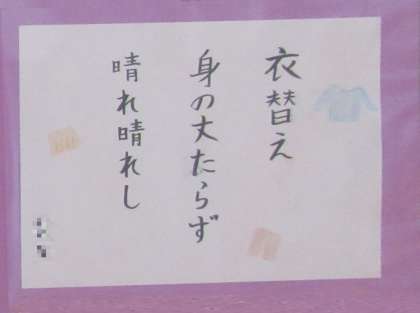 衣替え
身の丈たらず
晴れ晴れし